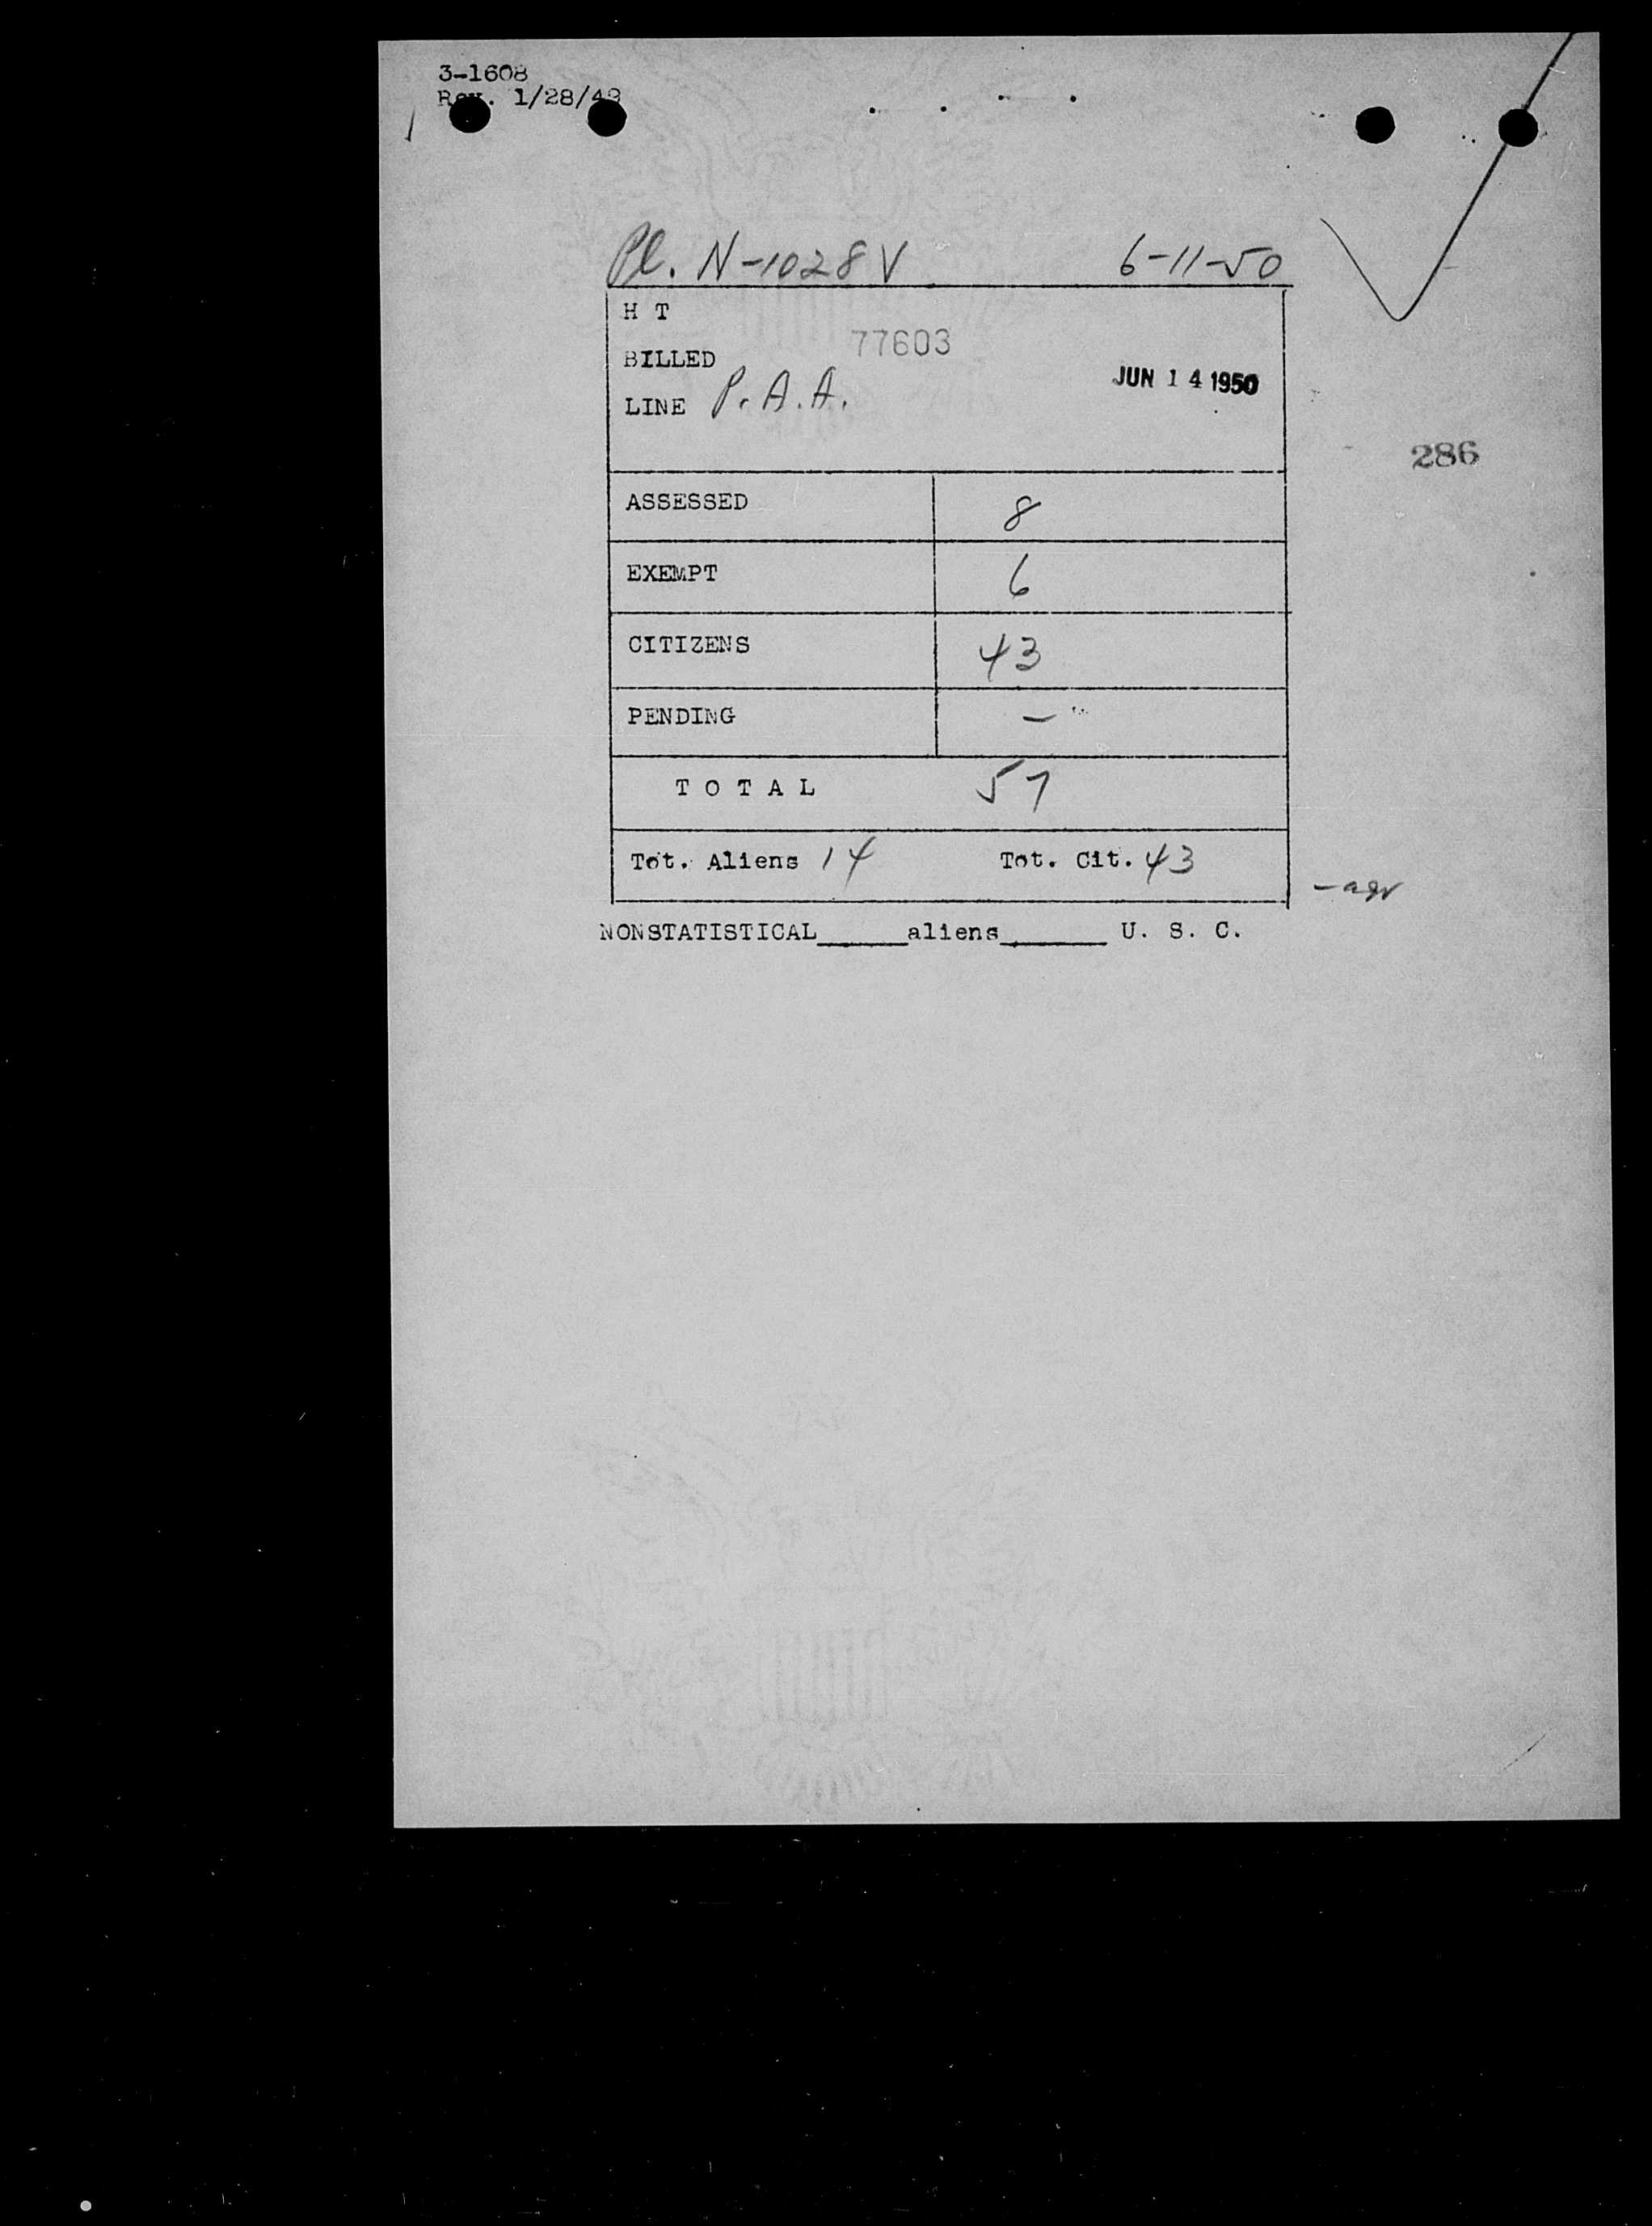 3-1608
Rev. 1/28/49
Pl. N-1028V 6-11-50
H T
77603
BILLED
JUN 14 1950
LINE P.A.A.
286
ASSESSED 8
EXEMPT 6
CITIZENS 43
PENDING —
T O T A L 57
Tot. Aliens 14 Tot. Cit. 43
NONSTATISTICAL______aliens_______ U. S. C.